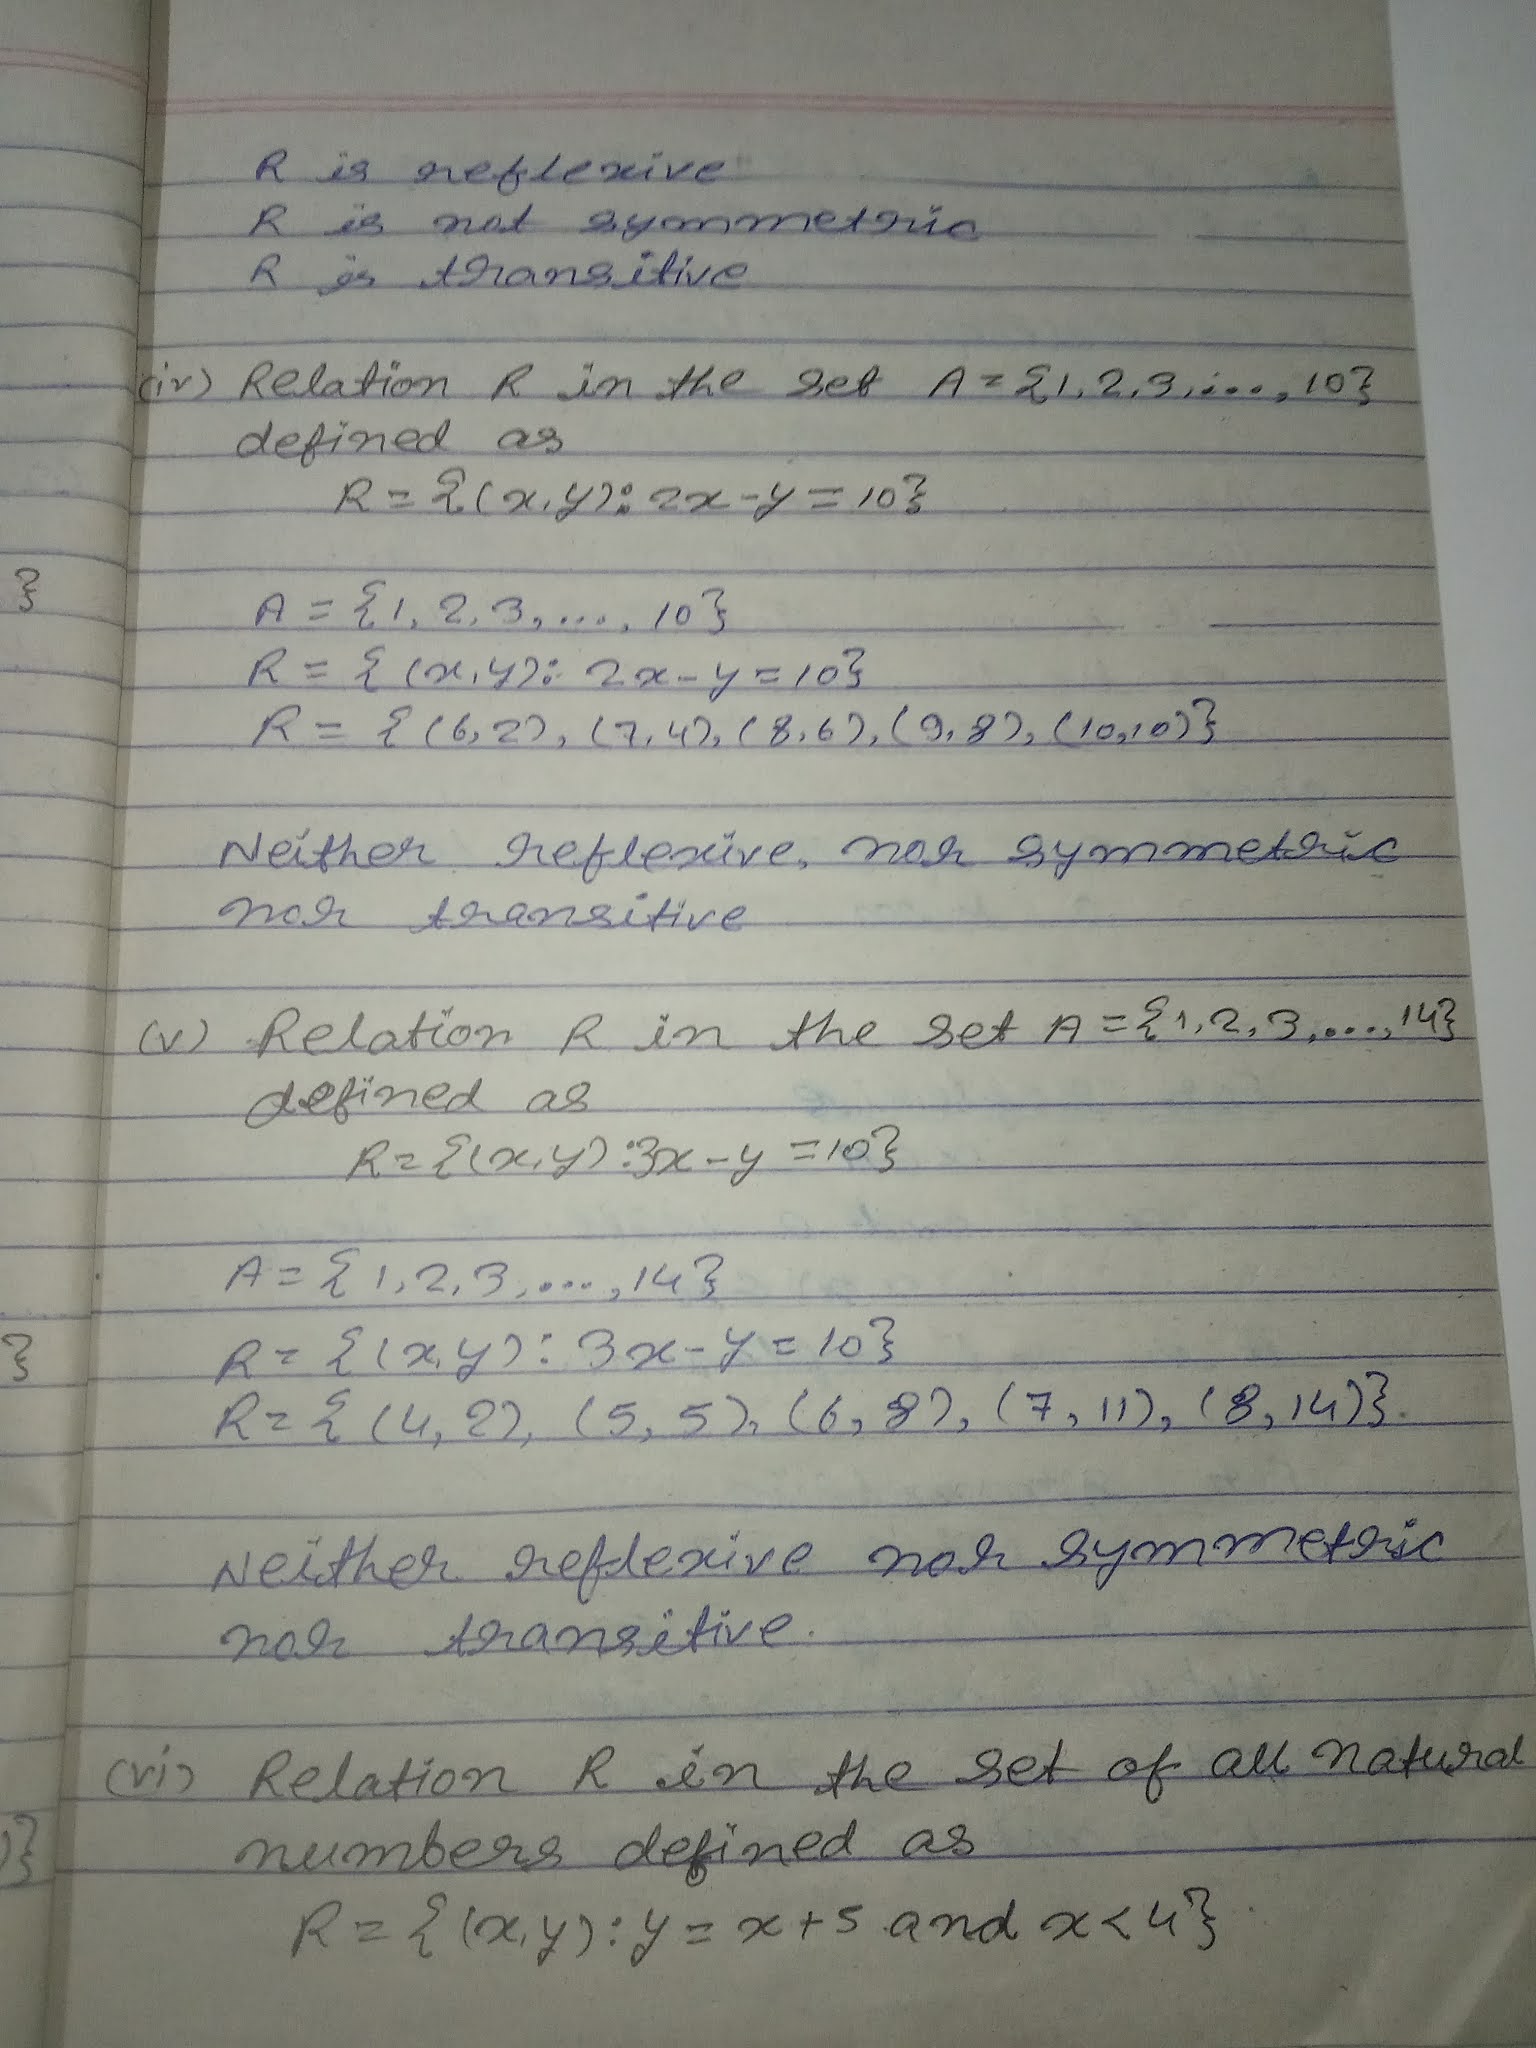 R is reflexive
R is not symmetric
R is transitive
(iv) Relation R in the set A = {1, 2, 3, ..., 10}
defined as
R = {(x, y): 2x - y = 10}
}
A = {1, 2, 3, ..., 10}
R = {(x, y): 2x - y = 10}
R = {(6, 2), (7, 4), (8, 6), (9, 8), (10, 10)}
Neither reflexive, nor symmetric
nor transitive
(v) Relation R in the set A = {1, 2, 3, ..., 14}
defined as
R = {(x, y) : 3x - y = 10}
A = {1, 2, 3, ..., 14}
}
R = {(x, y) : 3x - y = 10}
R = {(4, 2), (5, 5), (6, 8), (7, 11), (8, 14)}.
Neither reflexive nor symmetric
nor transitive.
(vi) Relation R in the set of all natural
)}
numbers defined as
R = {(x, y) : y = x + 5 and x < 4}